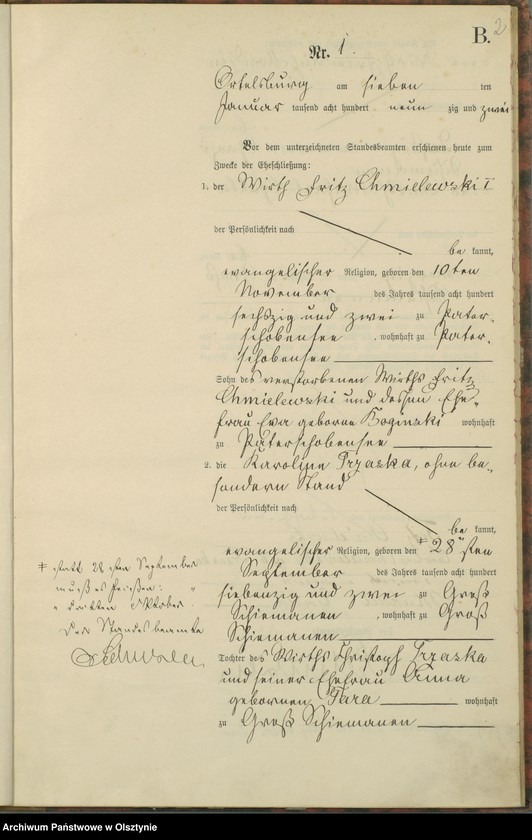 B.
2
Nr. 1.
Ortelsburg am sieben ten
Januar tausend acht hundert neun zig und zwei
Vor dem unterzeichneten Standesbeamten erschienen heute zum
Zwecke der Eheschließung:
1. der Wirth Fritz Chmielewski I
der Persönlichkeit nach
be kannt,
evangelischer Religion, geboren den 10ten
November des Jahres tausend acht hundert
sechszig und zwei zu Pater-
schobensee, wohnhaft zu Pater-
schobensee
Sohn des verstorbenen Wirths Fritz
Chmielewski und dessen Ehe-
frau Eva geborne wohnhaft
zu Paterschobensee
2. die Karoline Trzaska, ohne be-
sondern Stand
der Persönlichkeit nach
be kannt,
evangelischer Religion, geboren den # 28sten
September des Jahres tausend acht hundert
siebenzig und zwei zu Groß
Schiemanen, wohnhaft zu Groß
Schiemanen
Tochter des Wirths Christoph Trzaska
und seiner Ehefrau Anna
gebornen Zara wohnhaft
zu Groß Schiemanen
# statt 28sten September
muß es heißen:
" dritten Oktober "
Der Standesbeamte
Archiwum Państwowe w Olsztynie